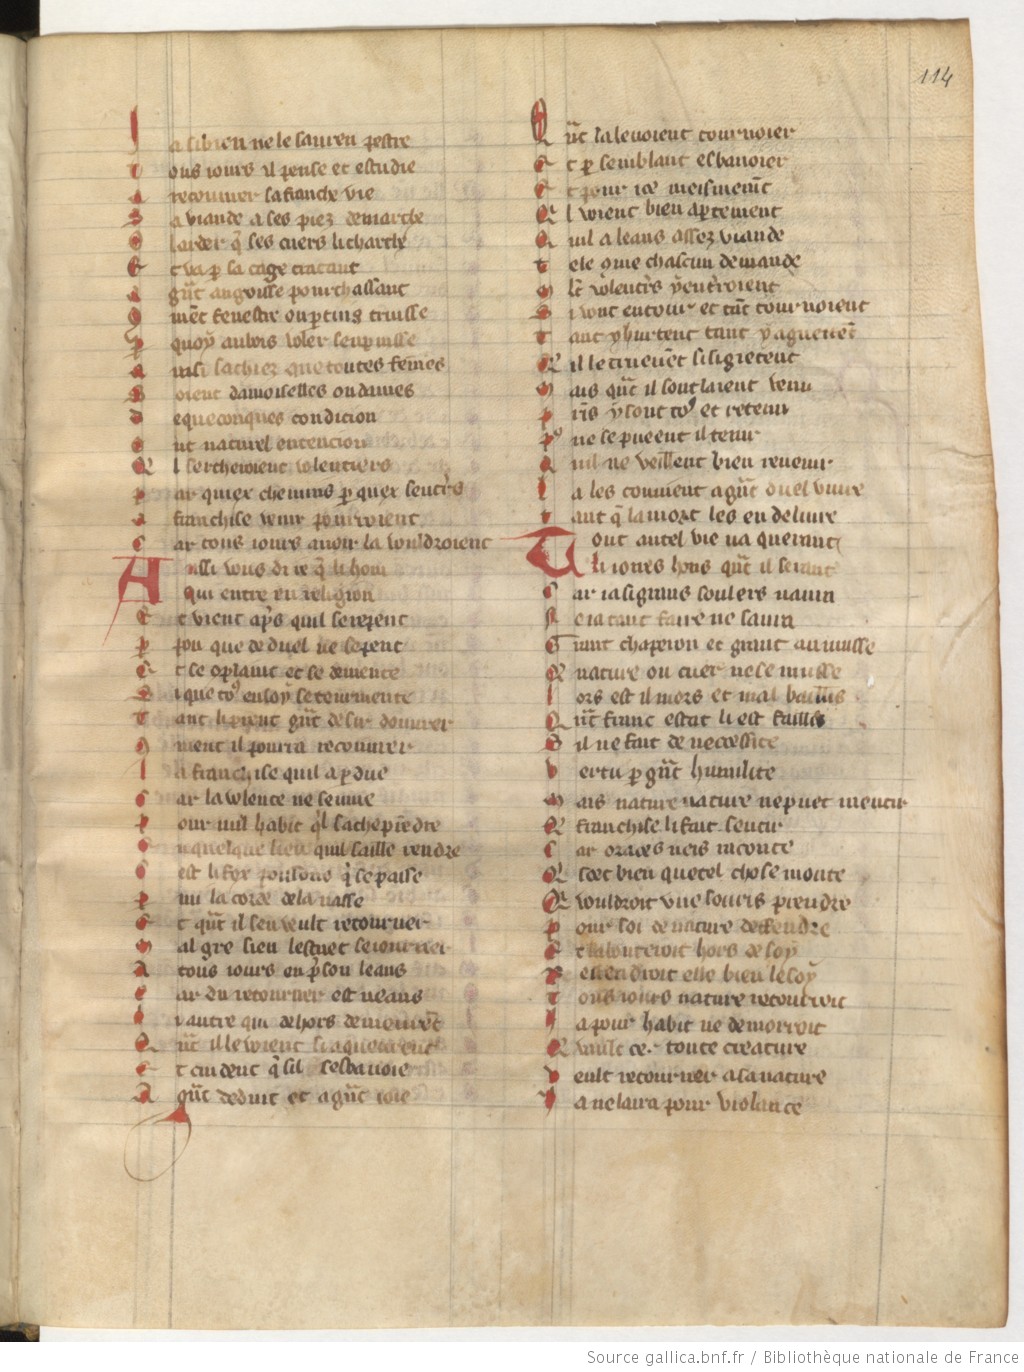 114
Ja si bien ne le sauren pestre
Tous iours il pense et estudie
A recouurer sa franche vie
Sa viande a ses piez demarche
O larder q̄ ses cuers li charche
Et va p sa cage tracant
A gñt angoisse pourchassant
9mēt fenestre ou ptuis truisse
P quoy au bois voler sen puisse
Ausi sachiez que toutes femes
Soient damoiselles ou dames
De queconques condicion
Ont naturel entencion
Ql sercheroient volentiers
Par quiex chemins p quex sentrs
A franchise venir pourroient
Car tous iours auoir la vouldroient
Aussi vous di ie q̄ li hom
Qui entre en religion
Et vient aps quil se repent
P pou que de duel ne se pent
Et se 9plaint et se demente
Si que to9 en soy se tourmente
Tant li vient gñt desir douurer
9ment il pourra recouurer
La franchise quil a pdue
Car la volente ne se mue
Pour nul habit ql sache prēdre
En quelque lieu quil saille rendre
Cest li fox poissons q̄ se passe
Pmi la corde de la nasse
Et qñt il sen veult retourner
Mal gre sien lestuet seiourner
A tous iours en pson leans
Car du retourner est neans
Li autre qui dehors demeurēt
Qñt il le voient si aqueurent
Et cuident q̄ sil sesbanoie
A gñt deduit et a gñt ioie
Qñt la le voient tournoier
Et p semblant esbanoier
Et pour ice meismemēt
Ql voient bien aptement
Quil a leans assez viande
Tele 9me chascun demande
Mlt volentrs y entrroient
Si vont entour et tāt tournoient
Tant y hurtent tant y aguetēt
Q il le truevēt si si gietent
Mais qñt il sont laienz venu
Pris y sont to9 et retenu
P9 ne se pueent il tenir
Quil ne veillent bien reuenir
La les conuient a gñt duel viure
Tant q̄ la mort les en deliure
Tout autel vie va querant
Li iones hons qñt il se rant
Car ia si grans soulers naura
Ne ia tant faire ne saura
Grant chaperon et grant aumusse
Q nature ou cuer ne se musse
Lors est il mors et mal baillis
Qñt franc estat li est faillis
Sil ne fait de necessite
Vertu p gñt humilite
Mais nature nature ne puet mentir
Q franchise li fait sentir
Car oraces neis raconte
Q scet bien que tel chose monte
Q vouldroit vne fourcis prendre
Pour soi de nature deffendre
Et la bouteroit hors de soy
Reuendroit elle bien le soy
Tous iours nature recourroit
Ja pour habit ne demorroit
Q vault ce toute creature
Veult retourner a sa nature
Ja ne laira pour violance
Source gallica.bnf.fr / Bibliothèque nationale de France